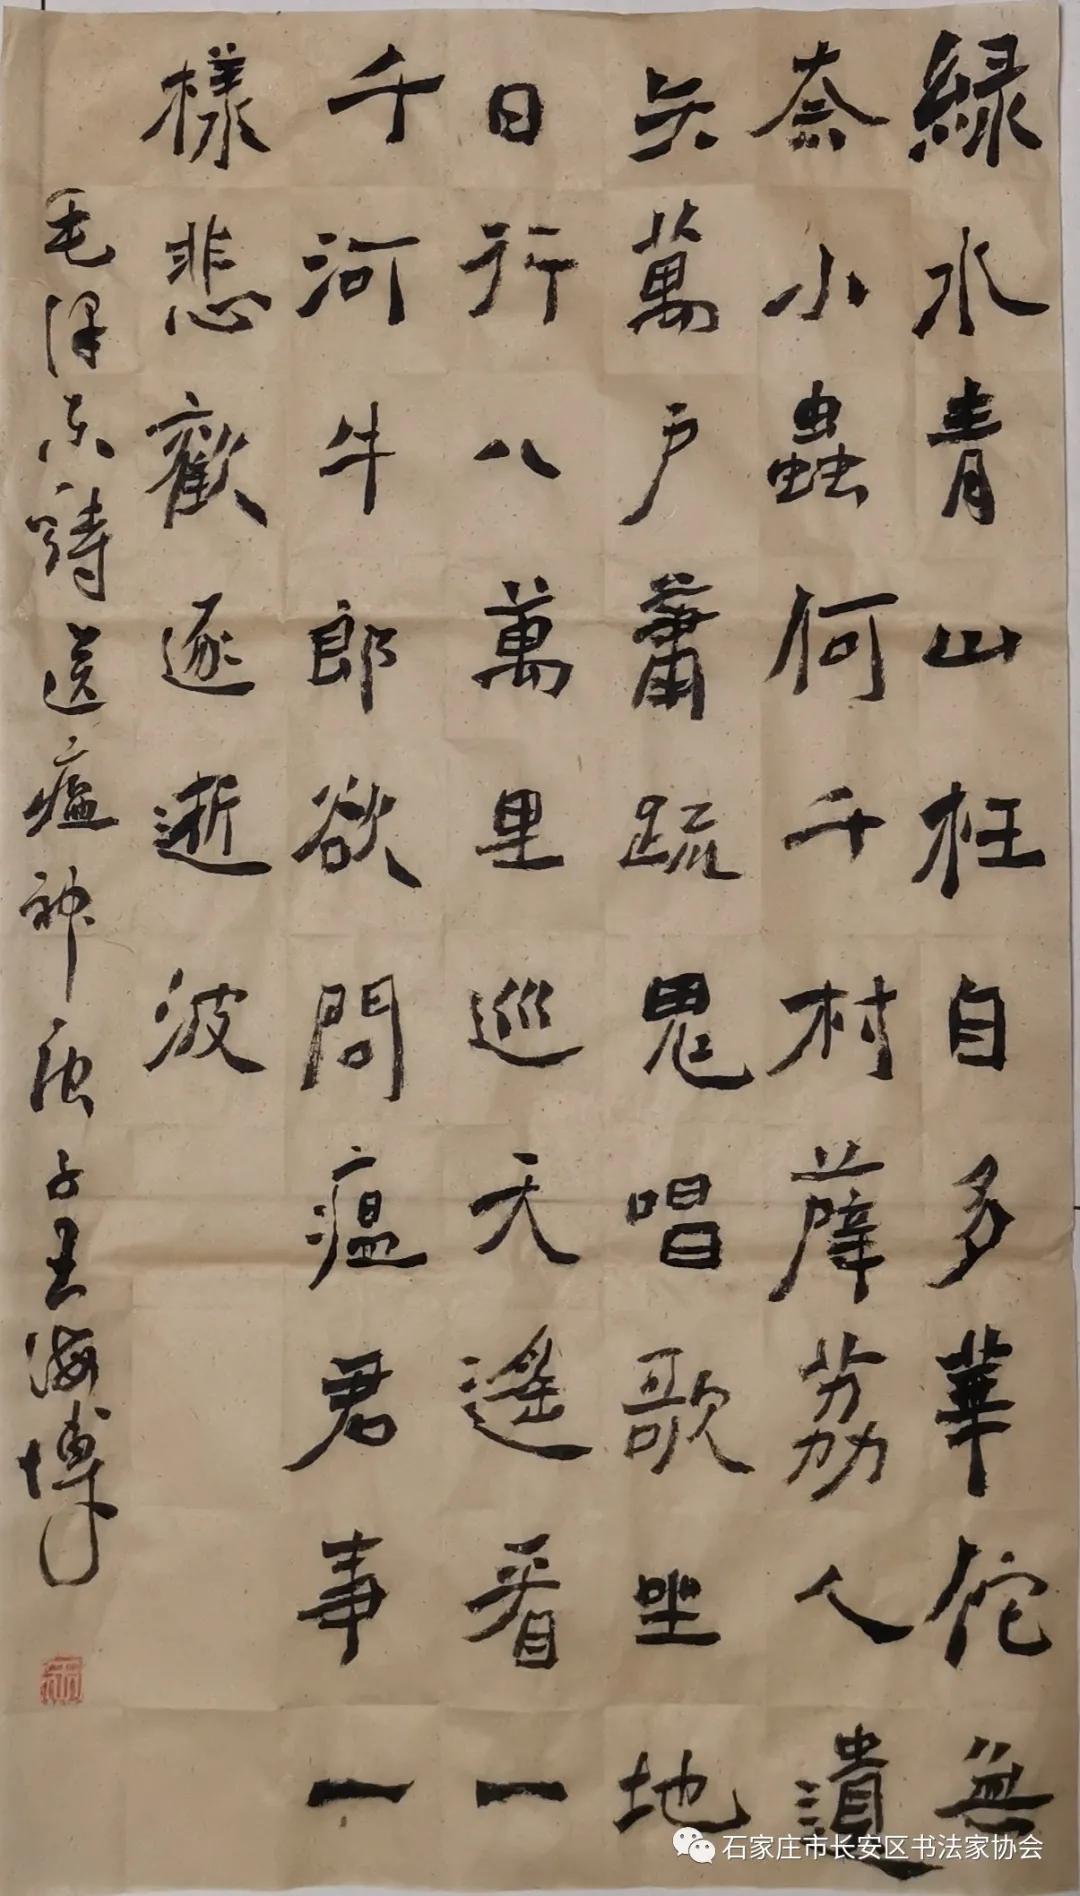 緑水青山枉自多華佗無
奈小蟲何千村薜荔人遺
矢萬户蕭疏鬼唱歌坐地
日行八萬里巡天遙看一
千河牛郎欲問瘟君事一
樣悲歡逐逝波
毛澤东詩送瘟神庚子王海博
石家庄市长安区书法家协会